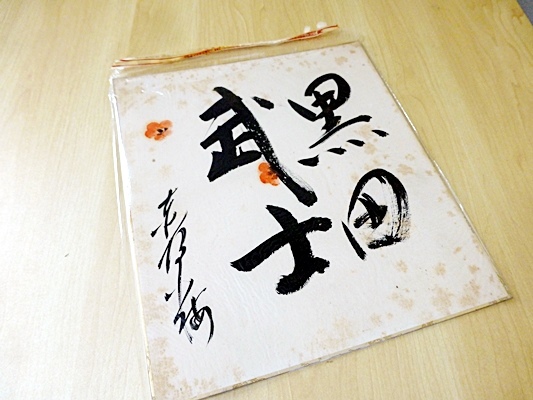 黒田
武士